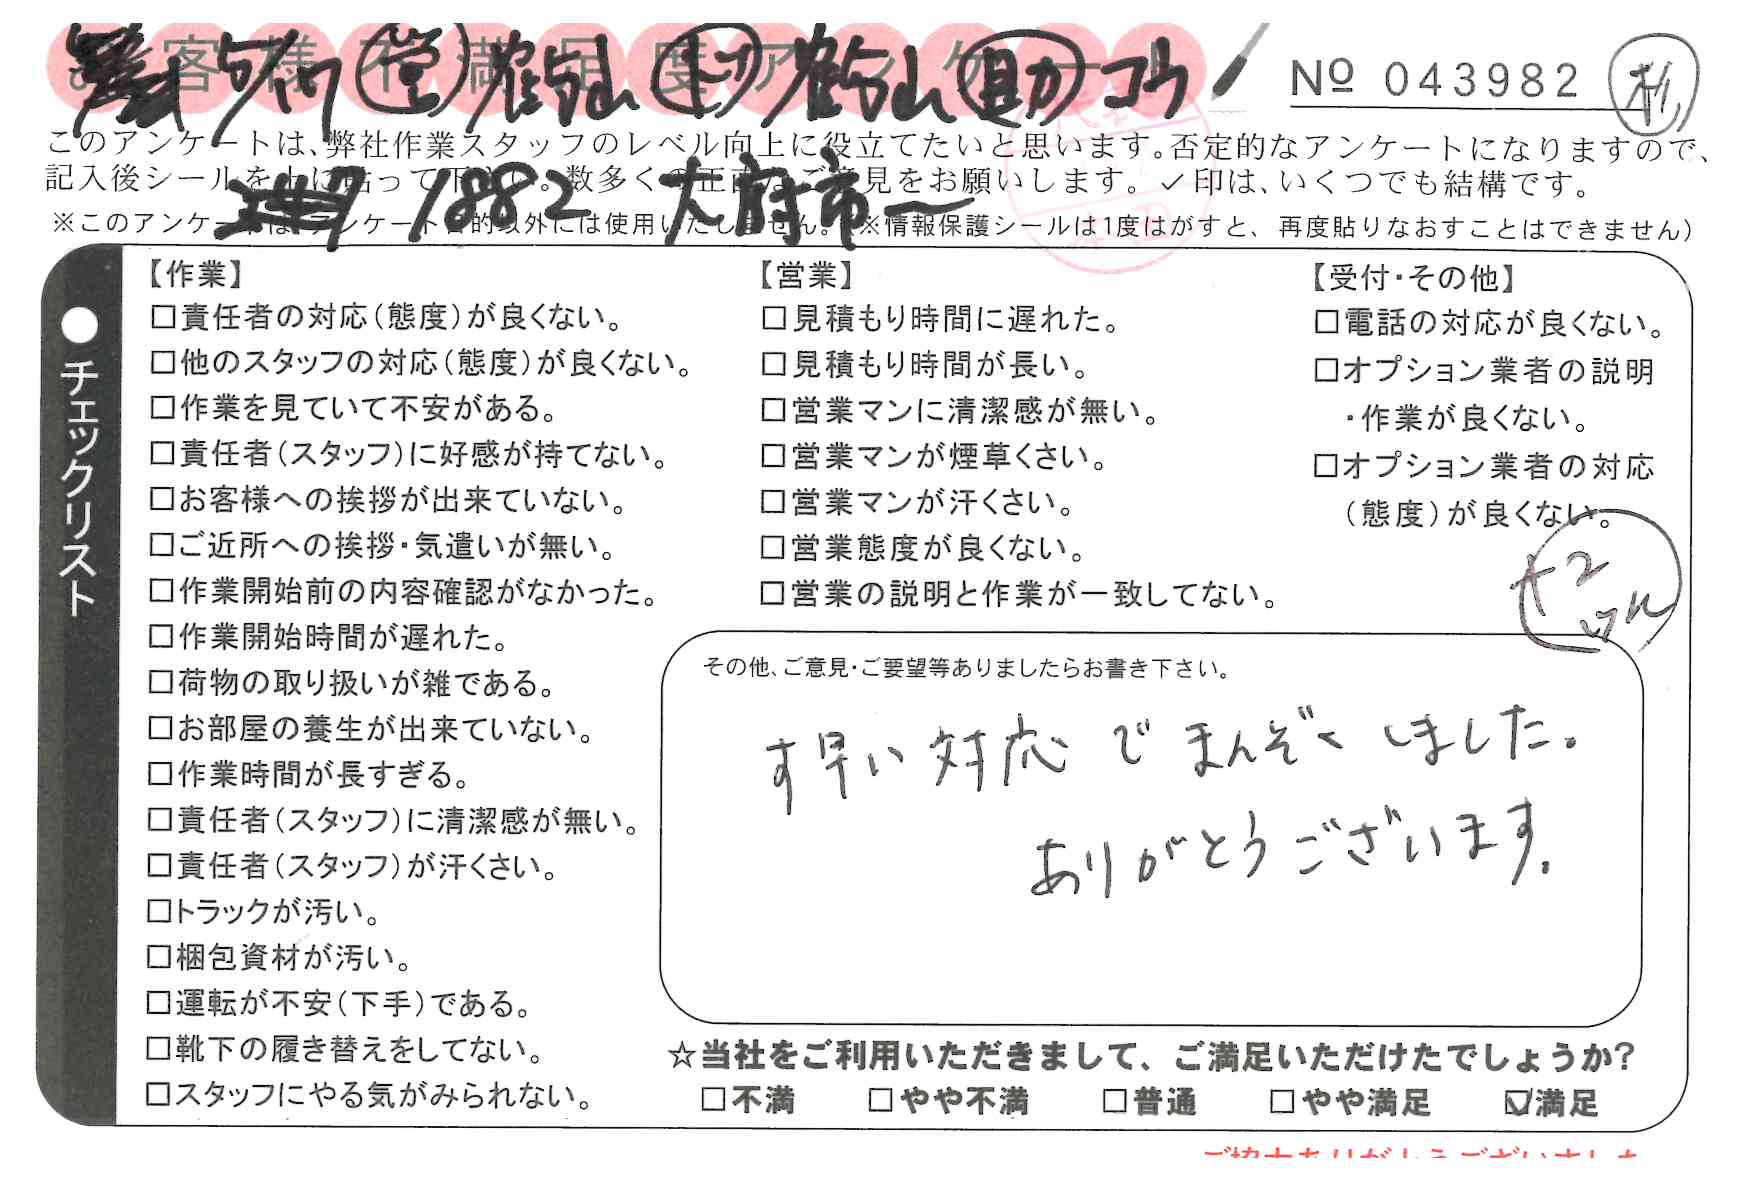 お客様不満足度アンケート
5/17 営 鶴山 村 鶴山 助 コウ
№ 043982 杉
このアンケートは、弊社作業スタッフのレベル向上に役立てたいと思います。否定的なアンケートになりますので、
記入後シールを上に貼って下さい。数多くの正直なご意見をお願いします。✓印は、いくつでも結構です。
1882 大府市〜
※このアンケートは、アンケート目的以外には使用いたしません。(※情報保護シールは1度はがすと、再度貼りなおすことはできません)
●チェックリスト
【作業】
□責任者の対応(態度)が良くない。
□他のスタッフの対応(態度)が良くない。
□作業を見ていて不安がある。
□責任者(スタッフ)に好感が持てない。
□お客様への挨拶が出来ていない。
□ご近所への挨拶・気遣いが無い。
□作業開始前の内容確認がなかった。
□作業開始時間が遅れた。
□荷物の取り扱いが雑である。
□お部屋の養生が出来ていない。
□作業時間が長すぎる。
□責任者(スタッフ)に清潔感が無い。
□責任者(スタッフ)が汗くさい。
□トラックが汚い。
□梱包資材が汚い。
□運転が不安(下手)である。
□靴下の履き替えをしてない。
□スタッフにやる気がみられない。
【営業】
□見積もり時間に遅れた。
□見積もり時間が長い。
□営業マンに清潔感が無い。
□営業マンが煙草くさい。
□営業マンが汗くさい。
□営業態度が良くない。
□営業の説明と作業が一致してない。
【受付・その他】
□電話の対応が良くない。
□オプション業者の説明
・作業が良くない。
□オプション業者の対応
(態度)が良くない。
その他、ご意見・ご要望等ありましたらお書き下さい。
す早い対応でまんぞくしました。
ありがとうございます。
☆当社をご利用いただきまして、ご満足いただけたでしょうか?
□不満 □やや不満 □普通 □やや満足 ☑満足
ご協力ありがとうございました